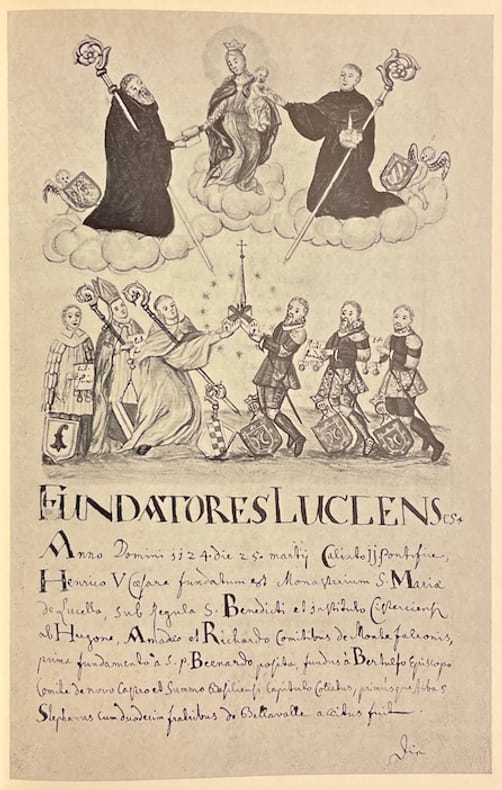 FUNDATORES LUCLENSes.
Anno Domini 1124. die 25. martij Calixto II Pontifice,
Henrico V Cæsare fundatum est Monasterium S. Mariæ
de Lucella, sub Regula S. Benedicti et instituto Cisterciensi
ab Hugone, Amadeo et Richardo Comitibus de Monte falconis,
prima fundamenta à S. p. Bernardo posita, fundus à Bertulfo Episcopo
Comite de novo Castro et Summo Basiliensi Capitulo Collatus, primusque Abbas
Stephanus cum duodecim fratribus de Bellavalle accitus fuit